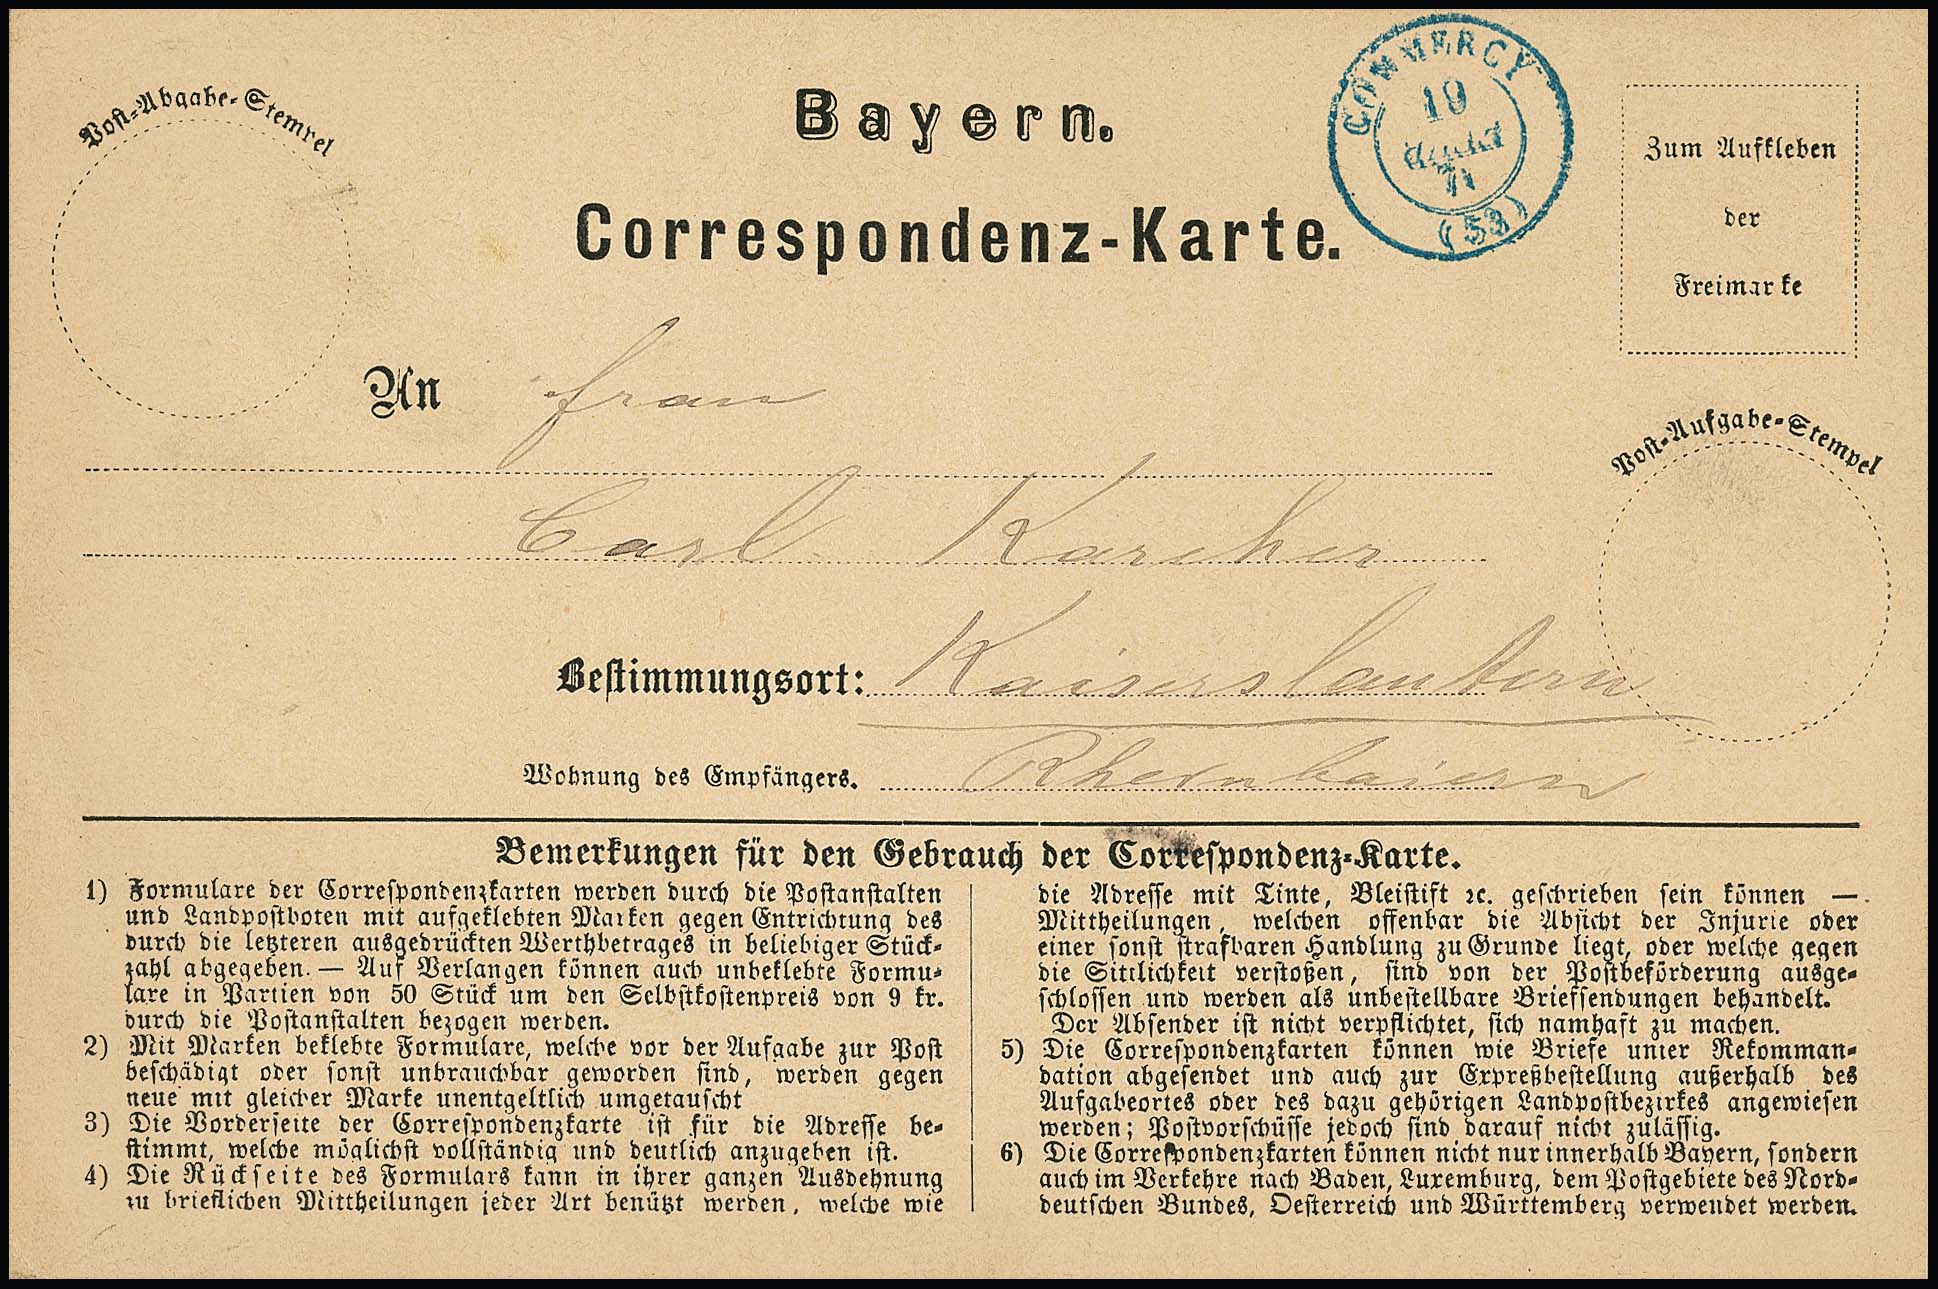 Bayern.
Correspondenz-Karte.
Post-Abgabe-Stempel
COMMERCY
19
71
(53)
Zum Aufkleben
der
Freimarke
An frau
Post-Aufgabe-Stempel
Carl Karcher
Bestimmungsort: Kaiserslautern
Wohnung des Empfängers. Rheinbaiern
Bemerkungen für den Gebrauch der Correspondenz-Karte.
1) Formulare der Correspondenzkarten werden durch die Postanstalten
und Landpostboten mit aufgeklebten Marken gegen Entrichtung des
durch die letzteren ausgedrückten Werthbetrages in beliebiger Stück-
zahl abgegeben. — Auf Verlangen können auch unbeklebte Formu-
lare in Partien von 50 Stück um den Selbstkostenpreis von 9 kr.
durch die Postanstalten bezogen werden.
2) Mit Marken beklebte Formulare, welche vor der Aufgabe zur Post
beschädigt oder sonst unbrauchbar geworden sind, werden gegen
neue mit gleicher Marke unentgeltlich umgetauscht
3) Die Vorderseite der Correspondenzkarte ist für die Adresse be-
stimmt, welche möglichst vollständig und deutlich anzugeben ist.
4) Die Rückseite des Formulars kann in ihrer ganzen Ausdehnung
zu brieflichen Mittheilungen jeder Art benützt werden, welche wie
die Adresse mit Tinte, Bleistift ꝛc. geschrieben sein können —.
Mittheilungen, welchen offenbar die Absicht der Injurie oder
einer sonst strafbaren Handlung zu Grunde liegt, oder welche gegen
die Sittlichkeit verstoßen, sind von der Postbeförderung ausge-
schlossen und werden als unbestellbare Briefsendungen behandelt.
Der Absender ist nicht verpflichtet, sich namhaft zu machen.
5) Die Correspondenzkarten können wie Briefe unter Rekomman-
dation abgesendet und auch zur Expreßbestellung außerhalb des
Aufgabeortes oder des dazu gehörigen Landpostbezirkes angewiesen
werden; Postvorschüsse jedoch sind darauf nicht zulässig.
6) Die Correspondenzkarten können nicht nur innerhalb Bayern, sondern
auch im Verkehre nach Baden, Luxemburg, dem Postgebiete des Nord-
deutschen Bundes, Oesterreich und Württemberg verwendet werden.